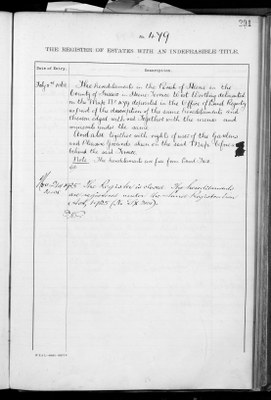 291
No. 479
THE REGISTER OF ESTATES WITH AN INDEFEASIBLE TITLE.
Date of Entry.
Description.
The hereditaments in the Parish of Heene in the
County of Sussex in Heene Terrace West Worthing delineated
on the Map No 479 deposited in the Office of Land Registry
as part of the description of the same hereditaments and
thereon edged with red Together with the mines and
minerals under the same
And also together with rights of user of the Gardens
and Pleasure Grounds shewn on the said Map
behind the said Terrace
Note The hereditaments are free from Land Tax
1925 The Register is closed. The hereditaments
are registered under the Land Registration
Act, 1925